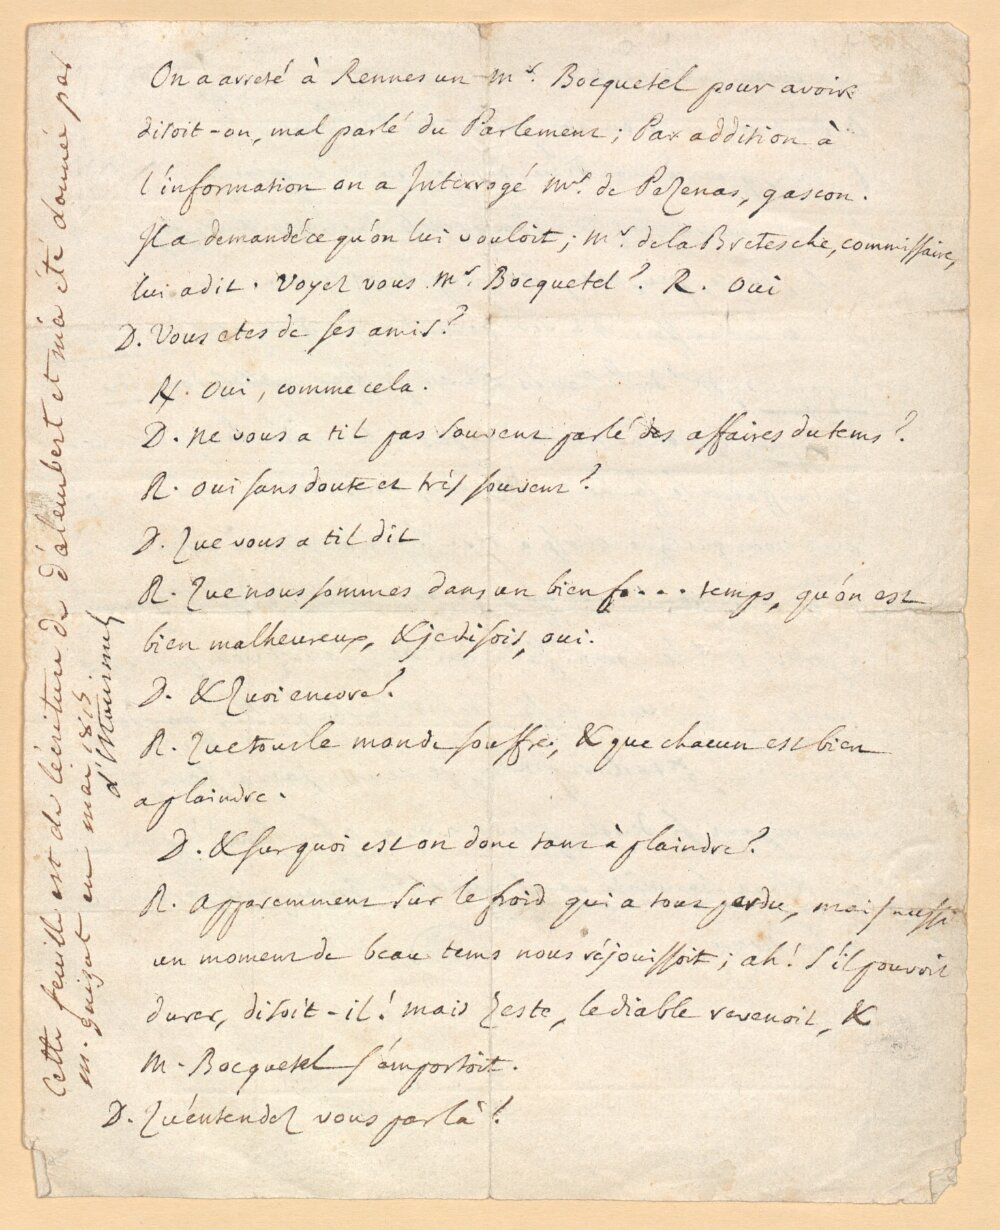 On a arreté à Rennes un Mr. Bocquetel pour avoir
disoit-on, mal parlé du Parlement; Par addition à
l'information on a Interrogé Mr. de Pezenas, gascon.
Il a demandé ce qu'on lui vouloit; Mr. de la Bretesche, commissaire,
lui a dit. Voyez vous Mr. Bocquetel? R. Oui
D. Vous etes de ses amis?
R. Oui, comme cela.
D. Ne vous a til pas souvent parlé des affaires du tems?
R. Oui sans doute et très souvent?
D. Que vous a til dit
R. Que nous sommes dans un bien f.... temps, qu'on est
bien malheureux, & je disois, oui.
D. & Quoi encore?
R. Que tous le monde souffre, & que chacun est bien
a plaindre.
D. & sur quoi est on donc tant à plaindre?
R. Apparemment sur le froid qui a tout perdu, mais aussi
un moment de beau tems nous réjouissoit; ah! s'il pouvoit
durer, disoit-il! mais zeste, le diable revenoit, &
M. Bocquetel s'emportoit.
D. Qu'entendez vous par là?
Cette feuille est de l'écriture de d'alembert et m'a été donnée par
m. guizot en mai 1815